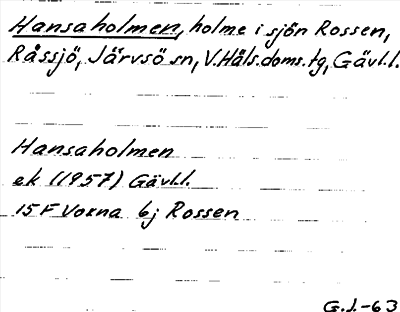 Hansaholmen, holme i sjön Rossen,
Råssjö, Järvsö sn, V.Häls.doms.tg, Gävl.l.
Hansaholmen
ek (1957) Gävl.l.
15F Voxna 6j Rossen
G.J.-63